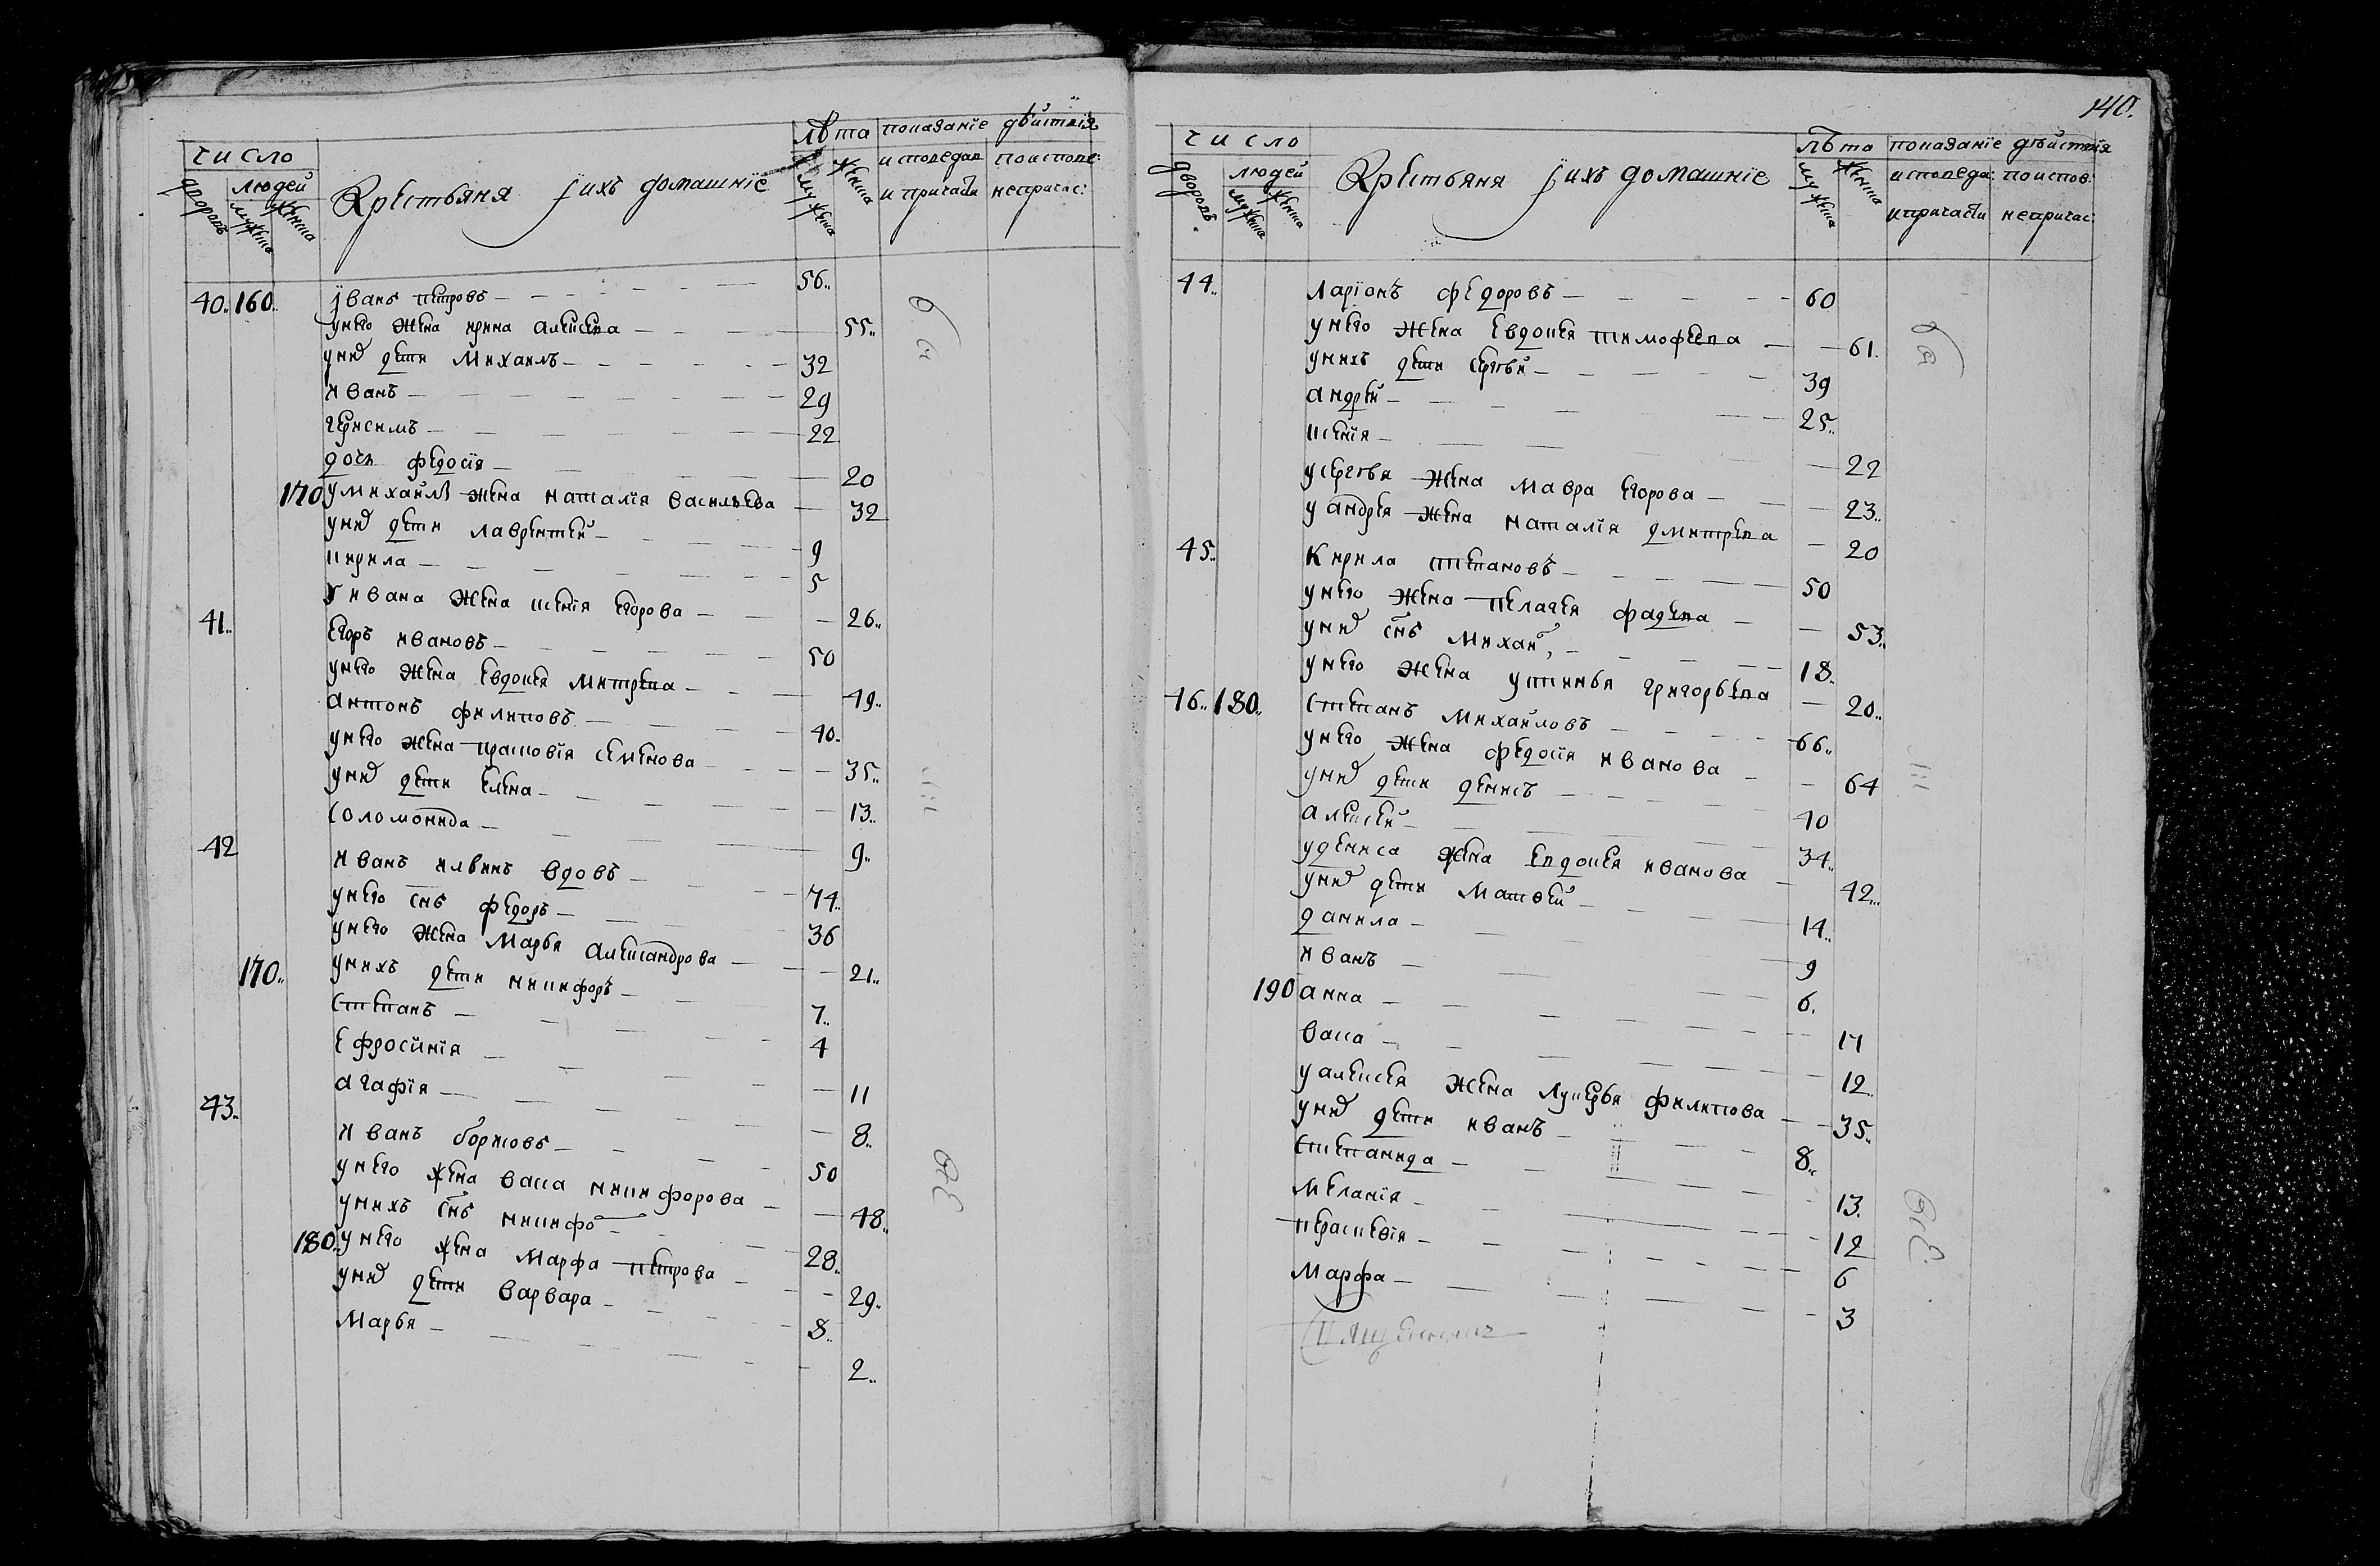 число
дворовъ людей
мужеска женска
Крестьяня їихъ домашнїе
лѣта
мужеска женска
показанїе дѣйствїя
исповедал и причасти
поиспове: непричас:
40.. 160.. їванъ петровъ 56..
унего жена ирина алексева 55..
унид дети михаилъ 32
иванъ 29
герисимъ 22
дочь федосїя 20
170 умихайлы жена наталїя васильева 32
унид дети лаврентей 9
кирила 5
у ивана жена ксенїя егорова 26..
41.. егоръ ивановъ 50
унего жена евдокея митрева 49..
антонъ филиповъ 40.
унего жена прасковїя семенова 35..
унид дети елена 13..
соломонида 9..
42 иванъ ильинъ вдовъ 74..
унего снъ федоръ 36
унего жена марья александрова 21..
170.. унихъ дети никифоръ 7..
степанъ 4
ефросинїя 11
агафїя 8..
43.. иванъ борисовъ 50
унего жена васса никифорова 48..
унихъ снъ никифо 28..
180.. унего жена марфа петрова 29..
унид дети варвара 8..
марья 2..
140.
число
дворовъ. людей
мужеска женска
Крестьяня їихъ домашнїе
лѣта
мужеска женска
показанїе дѣйствїя
исповеда: ипричасти
поиспов: непричас:
44.. ларїонъ федоровъ 60
унего жена евдокея тимофеева 61.
унихъ дети сергѣй 39
андрей 25..
ксенїя 22
усергѣя жена мавра егорова 23..
уандрея жена наталїя дмитрева 20
45.. кирила степановъ 50
унего жена пелагея фадеева 53..
унид снъ михай, 18.
унего жена устинья григорьева 20..
46.. 180.. степанъ михайловъ 66..
унего жена федосїя иванова 64
унид дети денисъ 40
алексей 34..
удениса жена евдокея иванова 42..
унид дети матвей 14..
данила 9
иванъ 6.
190 анна 17
васса 12
уалексея жена лукерья филипова 35..
унид дети иванъ 8..
степанида 13.
меланїя 12
параскевїя 6
марфа 3